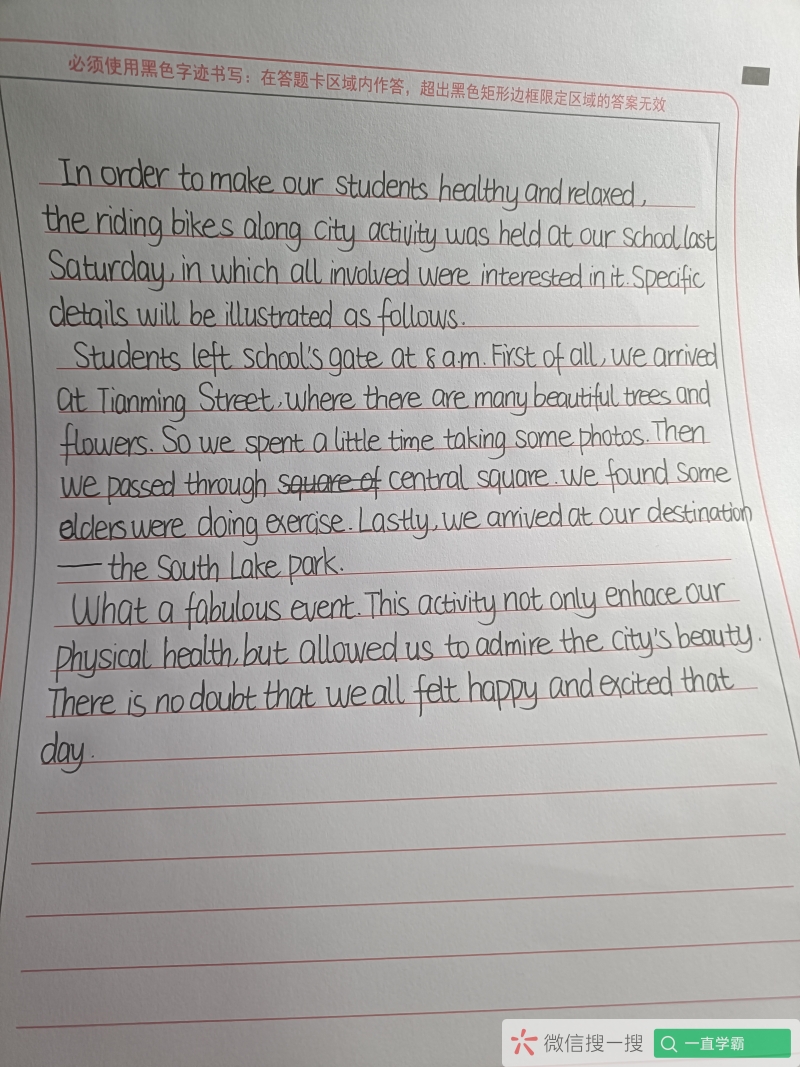 必须使用黑色字迹书写：在答题卡区域内作答，超出黑色矩形边框限定区域的答案无效
In order to make our students healthy and relaxed,
the riding bikes along city activity was held at our school last
Saturday, in which all involved were interested in it. Specific
details will be illustrated as follows.
Students left school's gate at 8 a.m. First of all, we arrived
at Tianming Street, where there are many beautiful trees and
flowers. So we spent a little time taking some photos. Then
we passed through square of central square. We found some
elders were doing exercise. Lastly, we arrived at our destination
— the South Lake park.
What a fabulous event. This activity not only enhace our
physical health, but allowed us to admire the city's beauty.
There is no doubt that we all felt happy and excited that
day.
微信搜一搜
一直学霸